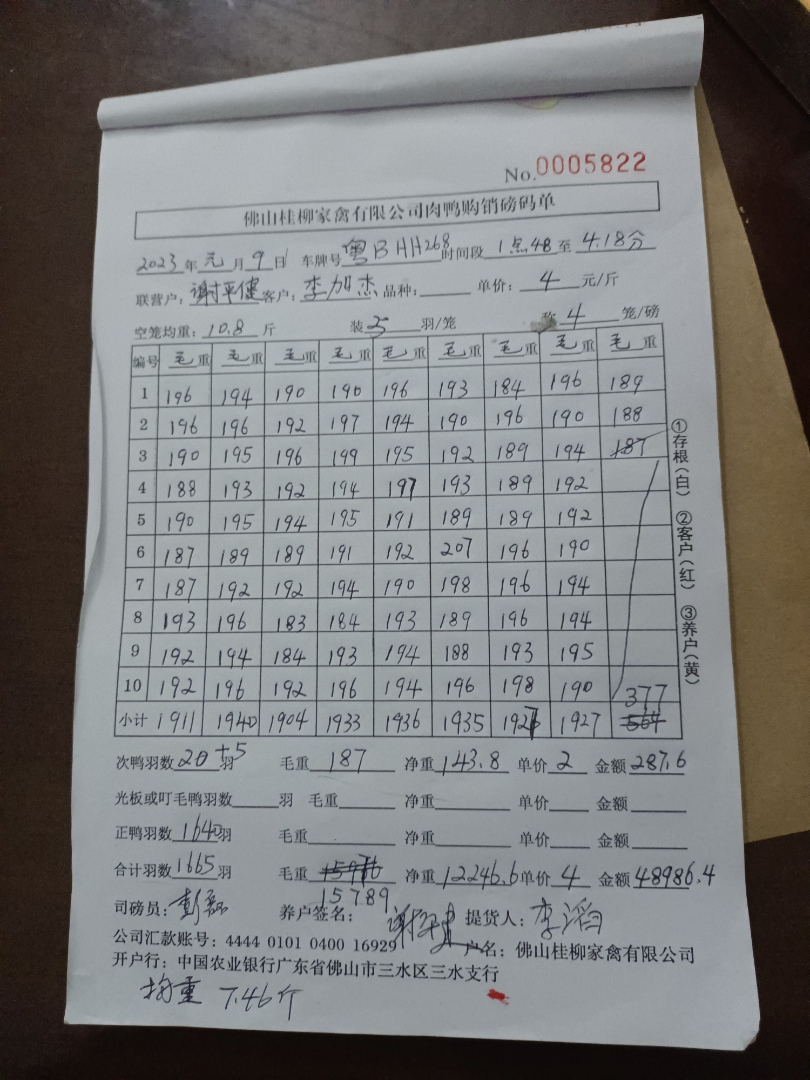 No.0005822
佛山桂柳家禽有限公司肉鸭购销磅码单
2023年元月9日 车牌号粤BHH268时间段1点48至4.18分
联营户:谢平健客户:李加杰品种: 单价:4元/斤
空笼均重:10.8斤 装5羽/笼 4笼/磅
编号 毛重 毛重 毛重 毛重 毛重 毛重 毛重 毛重 毛重
1 196 194 190 190 196 193 184 196 189
2 196 196 192 197 194 190 196 190 188
3 190 195 196 199 195 192 189 194 187
4 188 193 192 194 197 193 189 192
5 190 195 194 195 191 189 189 192
6 187 189 189 191 192 207 196 190
7 187 192 192 194 190 198 196 194
8 193 196 183 184 193 189 196 194
9 192 194 184 193 194 188 193 195
10 192 196 192 196 194 196 198 190 377
小计 1911 1940 1904 1933 1936 1935 1926 1927 564
①存根(白) ②客户(红) ③养户(黄)
次鸭羽数20+5羽 毛重187 净重143.8 单价2 金额287.6
光板或叮毛鸭羽数 羽 毛重 净重 单价 金额
正鸭羽数1640羽 毛重 净重 单价 金额
合计羽数1665羽 毛重15976 净重12246.6单价4 金额48986.4
15789
司磅员: 养户签名:谢平建 提货人:李滔
公司汇款账号:4444 0101 0400 16929 户名:佛山桂柳家禽有限公司
开户行:中国农业银行广东省佛山市三水区三水支行
均重 7.46斤